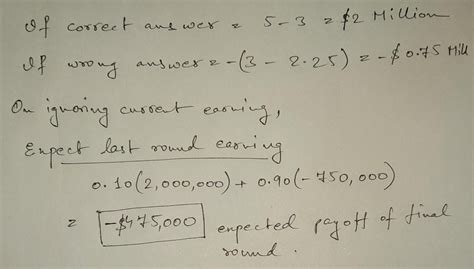 If correct answer = 5-3 = $2 Million
If wrong answer = -(3 - 2.25) = -$0.75 Mill
On ignoring current earning,
Expect last round earning
0.10(2,000,000) + 0.90(-750,000)
= -$475,000 expected payoff of final
round.